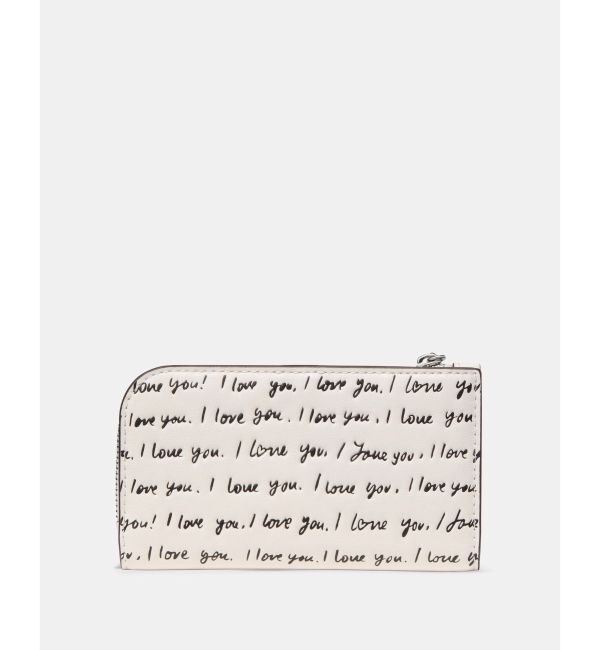 love you! I love you, I love you. I love you
love you. I love you. I love you, I love you
u. I love you. I love you, I love you, I love y
I love you. I love you. I love you, I love you.
you! I love you, I love you. I love you, I love
ou, I love you. I love you. I love you. I love y